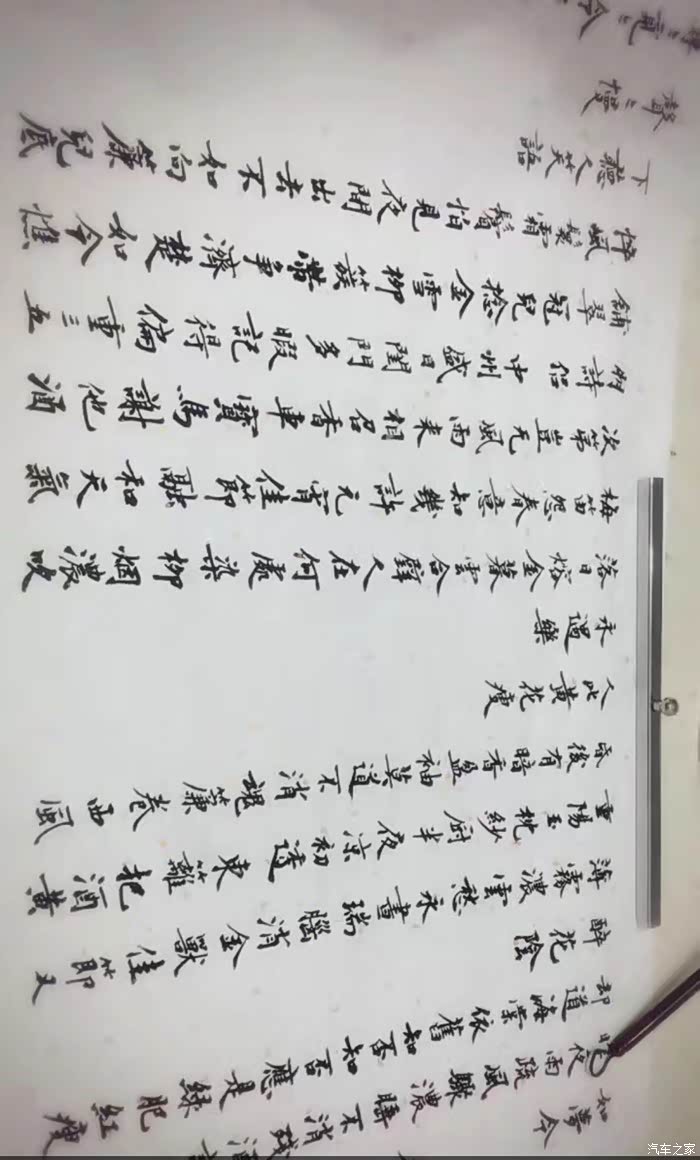 如夢令
夜雨疏風驟濃睡不消殘酒
却道海棠依舊知否知否應是綠肥紅瘦
醉花陰
薄霧濃雲愁永晝瑞腦消金獸佳節又
重陽玉枕紗厨半夜凉初透東籬把酒黄
昏後有暗香盈袖莫道不消魂簾卷西風
人比黄花瘦
永遇樂
落日熔金暮雲合璧人在何處染柳烟濃吹
梅笛怨春意知幾許元宵佳節融和天氣
次第豈无風雨来相召香車寶馬謝他酒
朋詩侣中州盛日閨門多暇記得偏重三五
鋪翠冠兒捻金雪柳簇帶爭濟楚如今憔
悴風鬟霜鬢怕見夜間出去不如向簾兒底
下聽人笑語
聲〻慢
尋〻覓〻冷
汽车之家